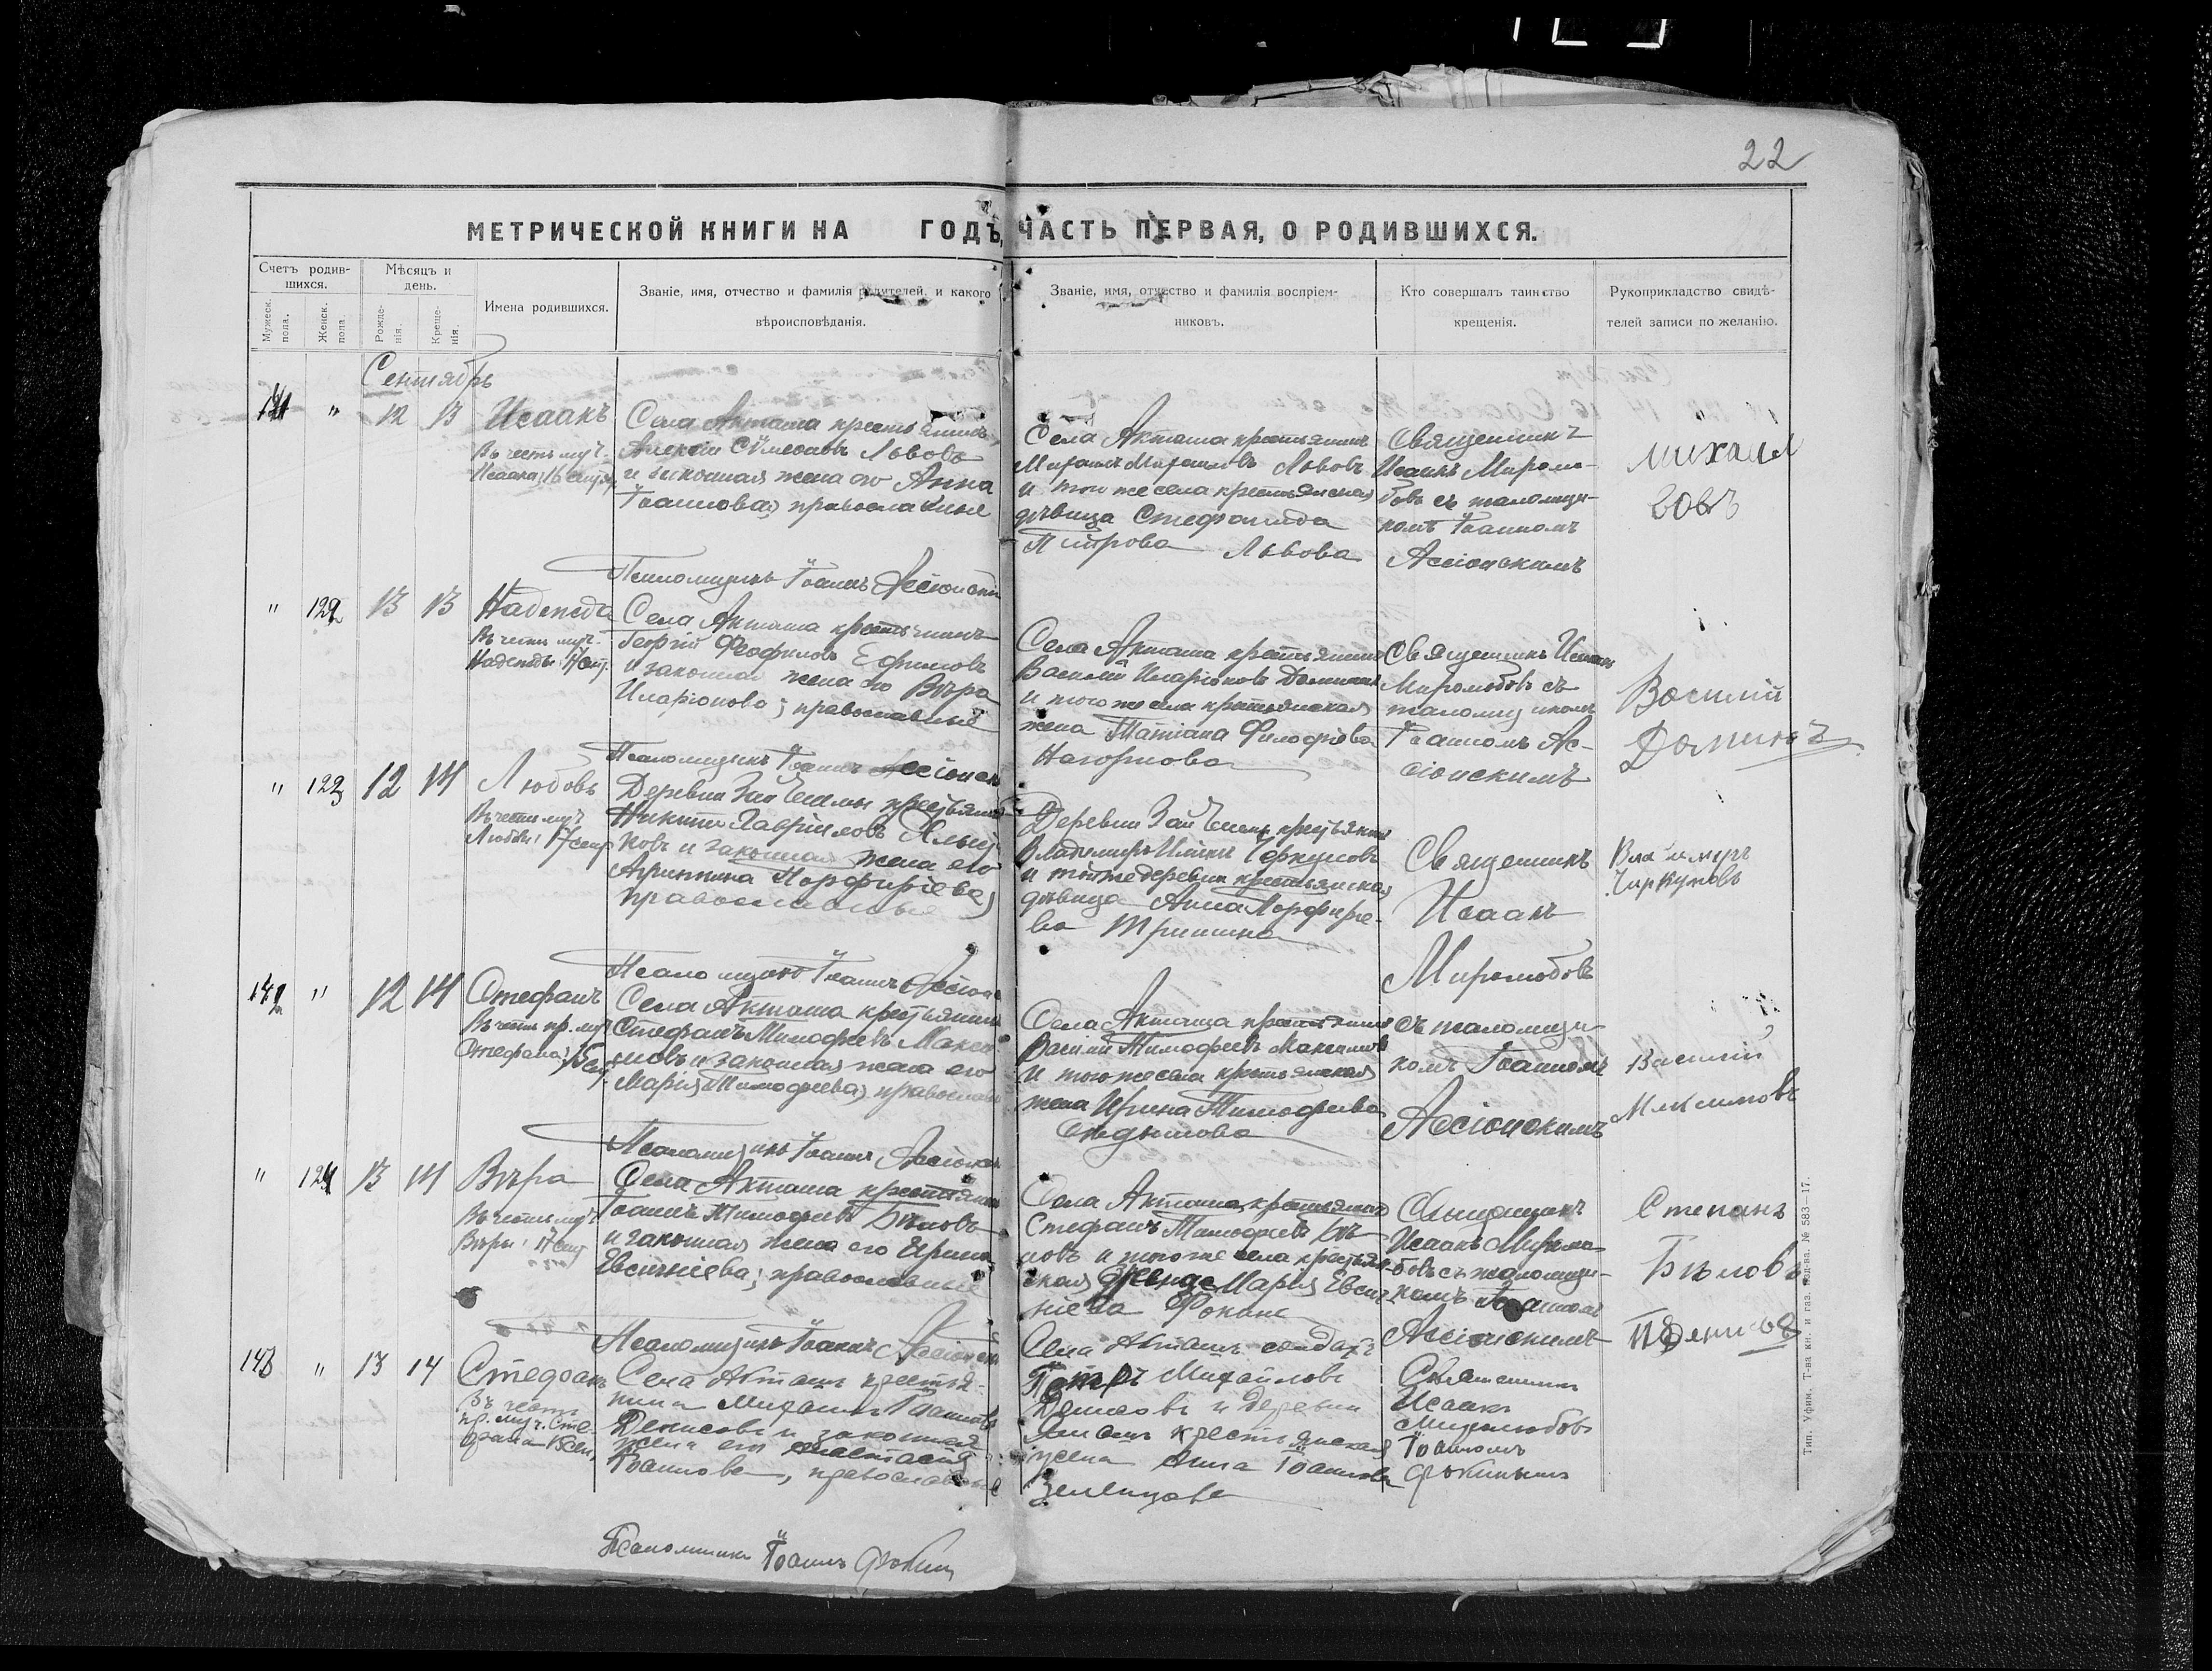 22
МЕТРИЧЕСКОЙ КНИГИ НА ГОДЪ, ЧАСТЬ ПЕРВАЯ, О РОДИВШИХСЯ.
Счетъ родив-
шихся.
Мужеск. пола.
Женск. пола.
Мѣсяцъ и
день.
Рожде-
нія.
Креще-
нія.
Имена родившихся.
Званіе, имя, отчество и фамилія родителей, и какого
вѣроисповѣданія.
Званіе, имя, отчество и фамилія воспріем-
никовъ.
Кто совершалъ таинство
крещенія.
Рукоприкладство свидѣ-
телей записи по желанію.
Сентябрь
141 " 12 13 Исаакъ
Въ честь муч.
Исаака, 16 сент.
Села Акташа крестьянинъ
Алексій Сѵмеоновъ Львовъ
и законная жена его Анна
Іоаннова, православные
Села Акташа крестьянинъ
Михаилъ Михаиловъ Львовъ
и того же села крестьянская
дѣвица Стефанида
Петрова Львова
Священникъ
Исаакъ Миролю-
бовъ съ псаломщи-
комъ Іоанномъ
Ассіонскимъ
михаил
вовъ
Псаломщикъ Іоаннъ Ассіонскій
" 122 13 13 Надежда
Въ честь муч.
Надежды 17 сент.
Села Акташа крестьянинъ
Георгій Ѳеофиловъ Ефимовъ
и законная жена его Вѣра
Иларіонова; православные
Села Акташа крестьянинъ
Василій Иларіоновъ
и того же села крестьянская
жена Татіана
Нагорнова
Священникъ Исаакъ
Миролюбовъ съ
псаломщикомъ
Іоанномъ Ас-
сіонскимъ
Василий
Псаломщикъ Іоаннъ Ассіонск
" 123 12 14 Любовь
Въ честь муч.
Любви 17 сент.
Деревни Зай Чишмы крестьянинъ
Никита Гавріиловъ
ковъ и законная жена его
Агриппина Порфиріева,
православные
Деревни Зай крестьянинъ
Владимиръ
и той же деревни крестьянская
дѣвица Анна Порфиріе-
ва Тришина
Священникъ
Исаакъ
Миролюбовъ
Владимиръ
Чиркуновъ
Псаломщикъ Іоаннъ Ассіонс
142 " 12 14 Стефанъ
Въ честь пр. муч.
Стефана, 15 сен.
Села Акташа крестьянинъ
Стефанъ Тимофеевъ Макси-
мовъ и законная жена его
Марія Тимофеева, православн
Села Акташа крестьянинъ
Василій Тимофеевъ Максимовъ
и того же села крестьянская
жена Ирина Тимофеева
съ псаломщи-
комъ Іоанномъ
Ассіонскимъ
Василий
Максимовъ
Псаломщикъ Іоаннъ Ассіонск
" 124 13 14 Вѣра
Въ честь муч.
Вѣры, 17 сент
Села Акташа крестьянинъ
Іоаннъ Тимофеевъ Бѣловъ
и законная жена его Ирина
Евсигніева; православные
Села Акташа, крестьянинъ
Стефанъ Тимофеевъ Бѣ-
ловъ и того же села крестьян-
ская Марія Евсиг-
ніева Фокина
Священникъ
Исаакъ Миролю-
бовъ съ псаломщи-
комъ Іоанномъ
Ассіонскимъ
Степанъ
Бѣловъ
Псаломщикъ Іоаннъ Ассіонск
143 " 13 14 Стефанъ
Въ честь
пр. муч. Сте-
фана 15 сен.
Села Акташъ крестья-
нинъ Михаилъ Іоанновъ
Денисовъ и законная
жена его Анастасія
Іоаннова, православные
Села Акташъ солдатъ
Петръ Михайловъ
Денисовъ и деревни
крестьянская
жена Анна Іоаннова
Священникъ
Исаакъ
Миролюбовъ
Іоанномъ
Фокинымъ
П Денисов
Псаломщикъ Іоаннъ Фокин
Тип. Уфим. Т-ва кн. и газ. изд-ва. № 583—17.